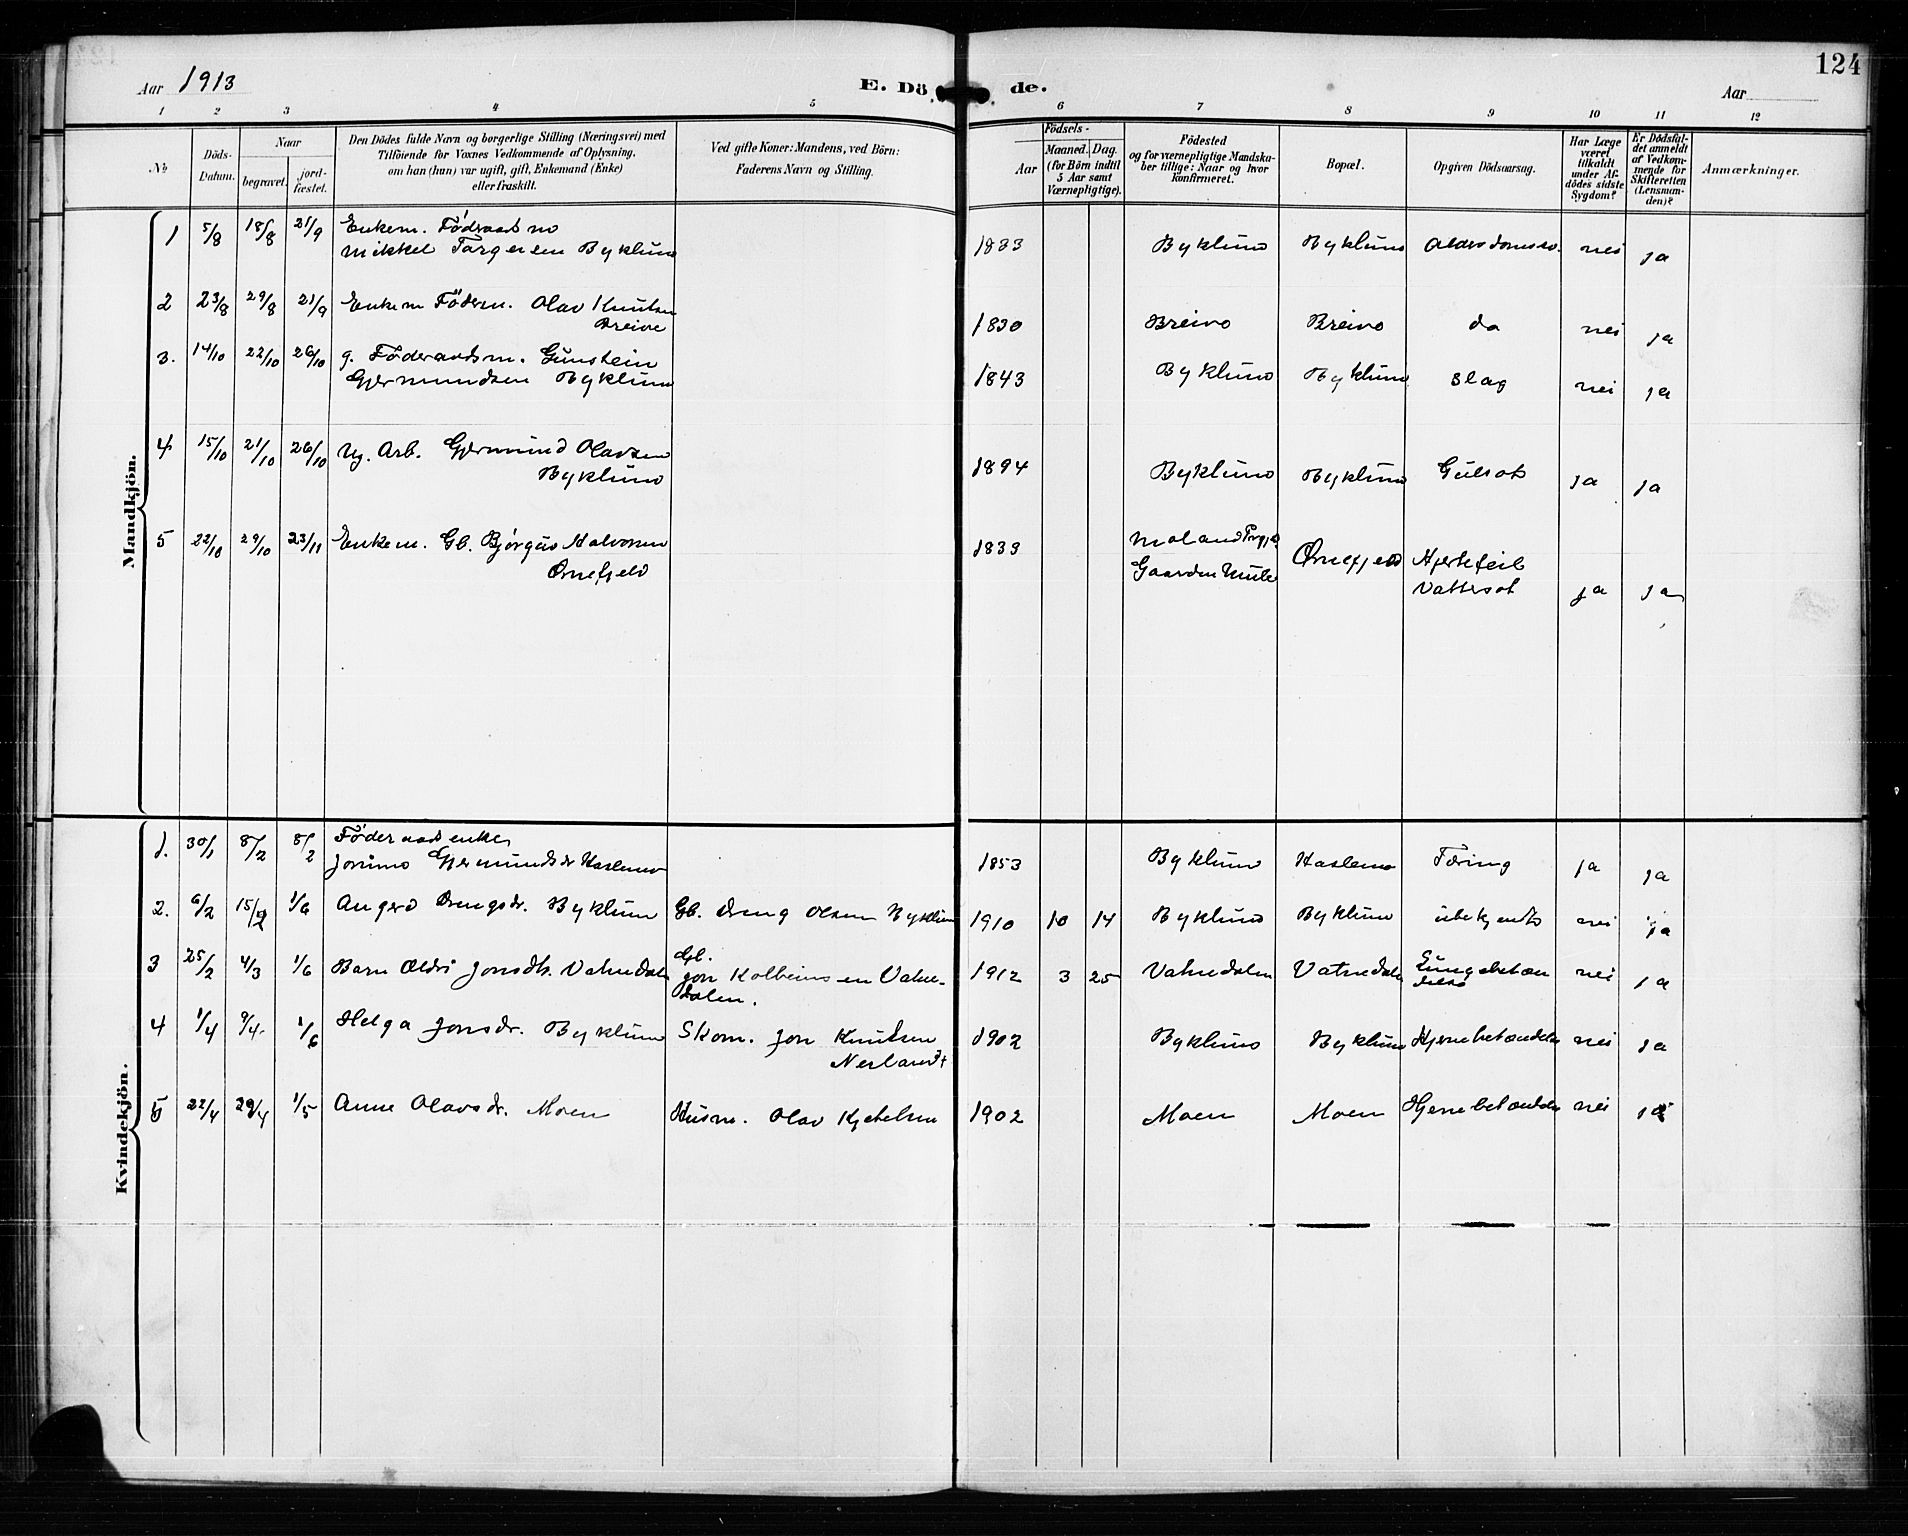 124
Aar 1913 E. Dö de. Aar
1 2 3 4 5 6 7 8 9 10 11 12
No Döds-Datum. Naar begravet. jord-fæstet. Den Dödes fulde Navn og borgerlige Stilling (Næringsvei) med Tilföiende for Voxnes Vedkommende af Oplysning, om han (hun) var ugift, gift, Enkemand (Enke) eller fraskilt. Ved gifte Koner: Mandens, ved Börn: Faderens Navn og Stilling. Födsels- Aar Maaned. Dag. (for Börn indtil 5 Aar samt Værnepligtige). Födested og for værnepligtige Mandska-ber tillige: Naar og hvor konfirmeret. Bopæl. Opgiven Dödsaarsag. Har Læge været tilkaldt under Af-dödes sidste Sygdom? Er Dödsfal-det anmeldt af Vedkom-mende for Skifteretten (Lensman-den)? Anmærkninger.
Mandkjön.
1 5/8 18/8 21/9 Enkem. Föderaadsm
Mikkel Targeisen Byklum 1833 Byklum Byklum Alderdomssv. nei ja
2 23/8 29/8 21/9 Enkem Föderm. Olav Knutsen
Breive 1830 Breive Breive do nei ja
3. 14/10 22/10 26/10 g. Föderaadsm. Gunstein
Gjermundsen Byklum 1843 Byklum Byklum Slag nei ja
4 15/10 21/10 26/10 Ug. Arb. Gjermund Olavsen
Byklum 1894 Byklum Byklum Gulsot ja ja
5 22/10 29/10 23/11 Enkem. Gb. Bjørguv Halvorsen
Ørnefjeld 1833 Moland Prgj.
Gaarden Mule Ørnefjeld Hjertefeil
Vattersot ja ja
Kvindekjön.
1. 30/1 8/2 8/2 Föderaadsenke
Jorunn Gjermundsdr Haslemo 1853 Byklum Haslemo Tæring ja ja
2. 6/2 15/2 1/6 Angerd Drengsdr. Byklum Gb. Dreng Olsen Byklum 1910 10 14 Byklum Byklum ubekjendt nei ja
3 25/2 4/3 1/6 Barn Oldri Jonsdtr. Vatnedalen Gb.
Jon Kolbeinsen Vatne-
dalen. 1912 3 25 Vatnedalen Vatnedalen Lungebetæn
delse nei ja
4 1/4 9/4 1/6 Helga Jonsdr. Byklum Skom. Jon Knutsen
Nerland 1902 Byklum Byklum Hjernebetændelse nei ja
5 22/4 29/4 1/5 Anne Olavsdr. Moen Husm. Olav Kjetelsen 1902 Moen Moen Hjernebetændelse nei ja